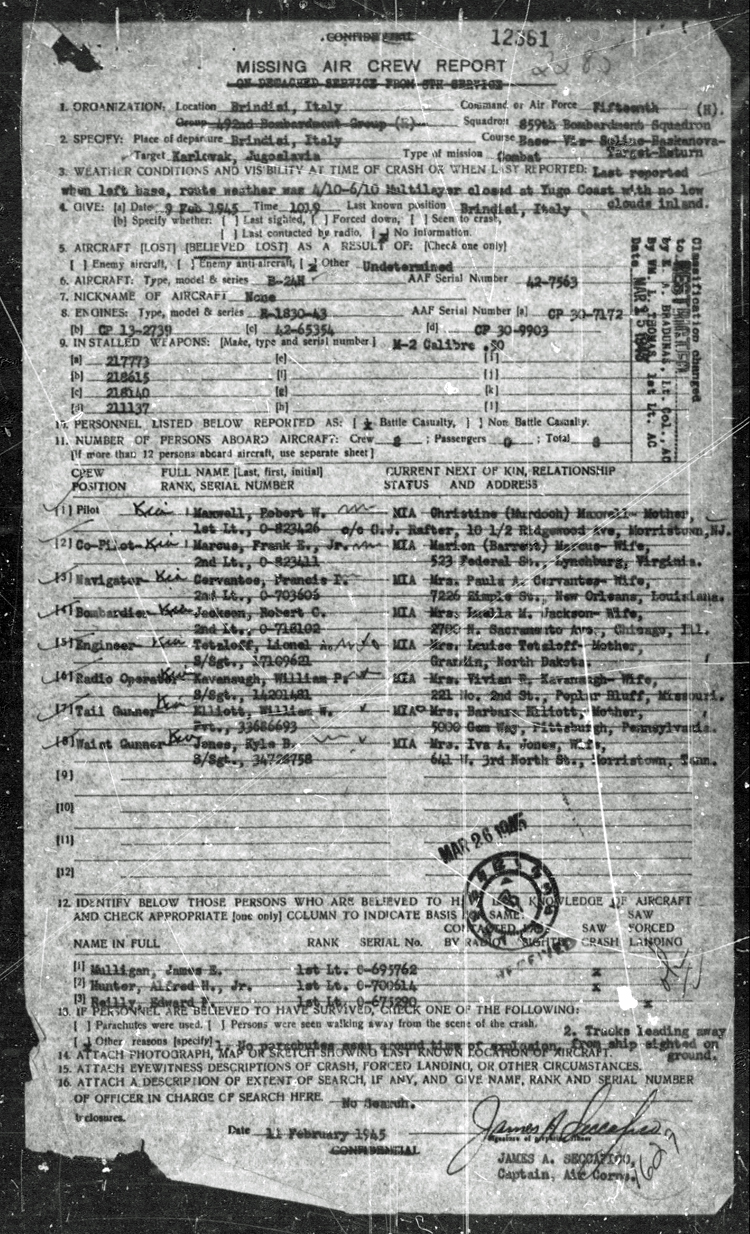 CONFIDENTIAL
12361
2285
MISSING AIR CREW REPORT
ON DETACHED SERVICE FROM 8TH SERVICE
1. ORGANIZATION: Location Brindisi, Italy Command or Air Force Fifteenth (H)
Group 492nd Bombardment Group (H) Squadron 859th Bombardment Squadron
2. SPECIFY: Place of departure Brindisi, Italy Course Base-Viz-Soline-Baskanova-
Target Karlovak, Jugoslavia Type of mission Combat Target-Return
3. WEATHER CONDITIONS AND VISIBILITY AT TIME OF CRASH OR WHEN LAST REPORTED: Last reported
when left base, route weather was 4/10-6/10 Multilayer closed at Yugo Coast with no low
clouds inland.
4. GIVE: (a) Date 9 Feb 1945 Time 1019 Last known position Brindisi, Italy
(b) Specify whether: [ ] Last sighted, [ ] Forced down, [ ] Seen to crash,
[ ] Last contacted by radio, [x] No information.
5. AIRCRAFT [LOST] [BELIEVED LOST] AS A RESULT OF: [Check one only]
[ ] Enemy aircraft, [ ] Enemy anti-aircraft, [x] Other Undetermined
6. AIRCRAFT: Type, model & series B-24H AAF Serial Number 42-7563
7. NICKNAME OF AIRCRAFT None
8. ENGINES: Type, model & series R-1830-43 AAF Serial Number [a] CP 30-7172
[b] CP 13-2739 [c] 42-65354 [d] CP 30-9903
9. INSTALLED WEAPONS: [Make, type and serial number] M-2 Calibre .50
[a] 217773 [e] [i]
[b] 218615 [f] [j]
[c] 218140 [g] [k]
[d] 211137 [h] [l]
Classification changed
to
by E. A. BRADUNAS, Lt. Col., AC
by WM. L. THOMAS, 1st Lt. AC
Date MAR 15 1946
10. PERSONNEL LISTED BELOW REPORTED AS: [x] Battle Casualty, [ ] Non Battle Casualty.
11. NUMBER OF PERSONS ABOARD AIRCRAFT: Crew 8 ; Passengers 0 ; Total 8
[If more than 12 persons aboard aircraft, use separate sheet]
CREW FULL NAME [Last, first, initial] CURRENT NEXT OF KIN, RELATIONSHIP
POSITION RANK, SERIAL NUMBER STATUS AND ADDRESS
[1] Pilot Kia Maxwell, Robert W. MIA Christine (Murdoch) Maxwell- Mother,
1st Lt., O-823426 c/o C.J. Rafter, 10 1/2 Ridgewood Ave, Morristown,NJ.
[2] Co-Pilot Kia Marcus, Frank E., Jr. MIA Marion (Barrett) Marcus- Wife,
2nd Lt., O-823411 523 Federal St., Lynchburg, Virginia.
[3] Navigator Kia Cervantes, Francis P. MIA Mrs. Paula A. Cervantes- Wife,
2nd Lt., O-703606 7226 Zimple St., New Orleans, Louisiana.
[4] Bombardier Kia Jackson, Robert C. MIA Mrs. Luella M. Jackson- Wife,
2nd Lt., O-718102 2700 N. Sacramento Ave., Chicago, Ill.
[5] Engineer Kia Tetzloff, Lionel MIA Mrs. Louise Tetzloff- Mother,
S/Sgt., 17109621 Grandin, North Dakota.
[6] Radio Operator Kia Kavanaugh, William P. MIA Mrs. Vivian R. Kavanaugh- Wife,
S/Sgt., 14201481 221 No. 2nd St., Poplar Bluff, Missouri.
[7] Tail Gunner Kia Elliott, William W. MIA Mrs. Barbara Elliott, Mother,
Pvt., 33686693 5000 Gem Way, Pittsburgh, Pennsylvania.
[8] Waist Gunner Kia Jones, Kyle B. MIA Mrs. Iva A. Jones, Wife,
S/Sgt., 34726758 641 W. 3rd North St., Morristown, Tenn.
[9]
[10]
[11]
[12]
MAR 26 1945
RECEIVED
12. IDENTIFY BELOW THOSE PERSONS WHO ARE BELIEVED TO KNOWLEDGE OF AIRCRAFT
AND CHECK APPROPRIATE [one only] COLUMN TO INDICATE BASIS SAME: SAW
SAW FORCED
NAME IN FULL RANK SERIAL No. BY RADIO SIGHTED CRASH LANDING
[1] Mulligan, James E. 1st Lt. O-695762 x
[2] Hunter, Alfred H., Jr. 1st Lt. O-700614 x
[3] Reilly, Edward F. 1st Lt. O-675290 x
13. IF PERSONNEL ARE BELIEVED TO HAVE SURVIVED, CHECK ONE OF THE FOLLOWING:
[ ] Parachutes were used. [ ] Persons were seen walking away from the scene of the crash.
[x] Other reasons [specify] 1. No parachutes seen around time of explosion. 2. Tracks leading away
from ship sighted on
ground.
14. ATTACH PHOTOGRAPH, MAP OR SKETCH SHOWING LAST KNOWN LOCATION OF AIRCRAFT.
15. ATTACH EYEWITNESS DESCRIPTIONS OF CRASH, FORCED LANDING, OR OTHER CIRCUMSTANCES.
16. ATTACH A DESCRIPTION OF EXTENT OF SEARCH, IF ANY, AND GIVE NAME, RANK AND SERIAL NUMBER
OF OFFICER IN CHARGE OF SEARCH HERE. No Search.
Date 11 February 1945
CONFIDENTIAL
James A Seccafico
Signature of preparing officer
JAMES A. SECCAFICO,
Captain, Air Corps.
1627